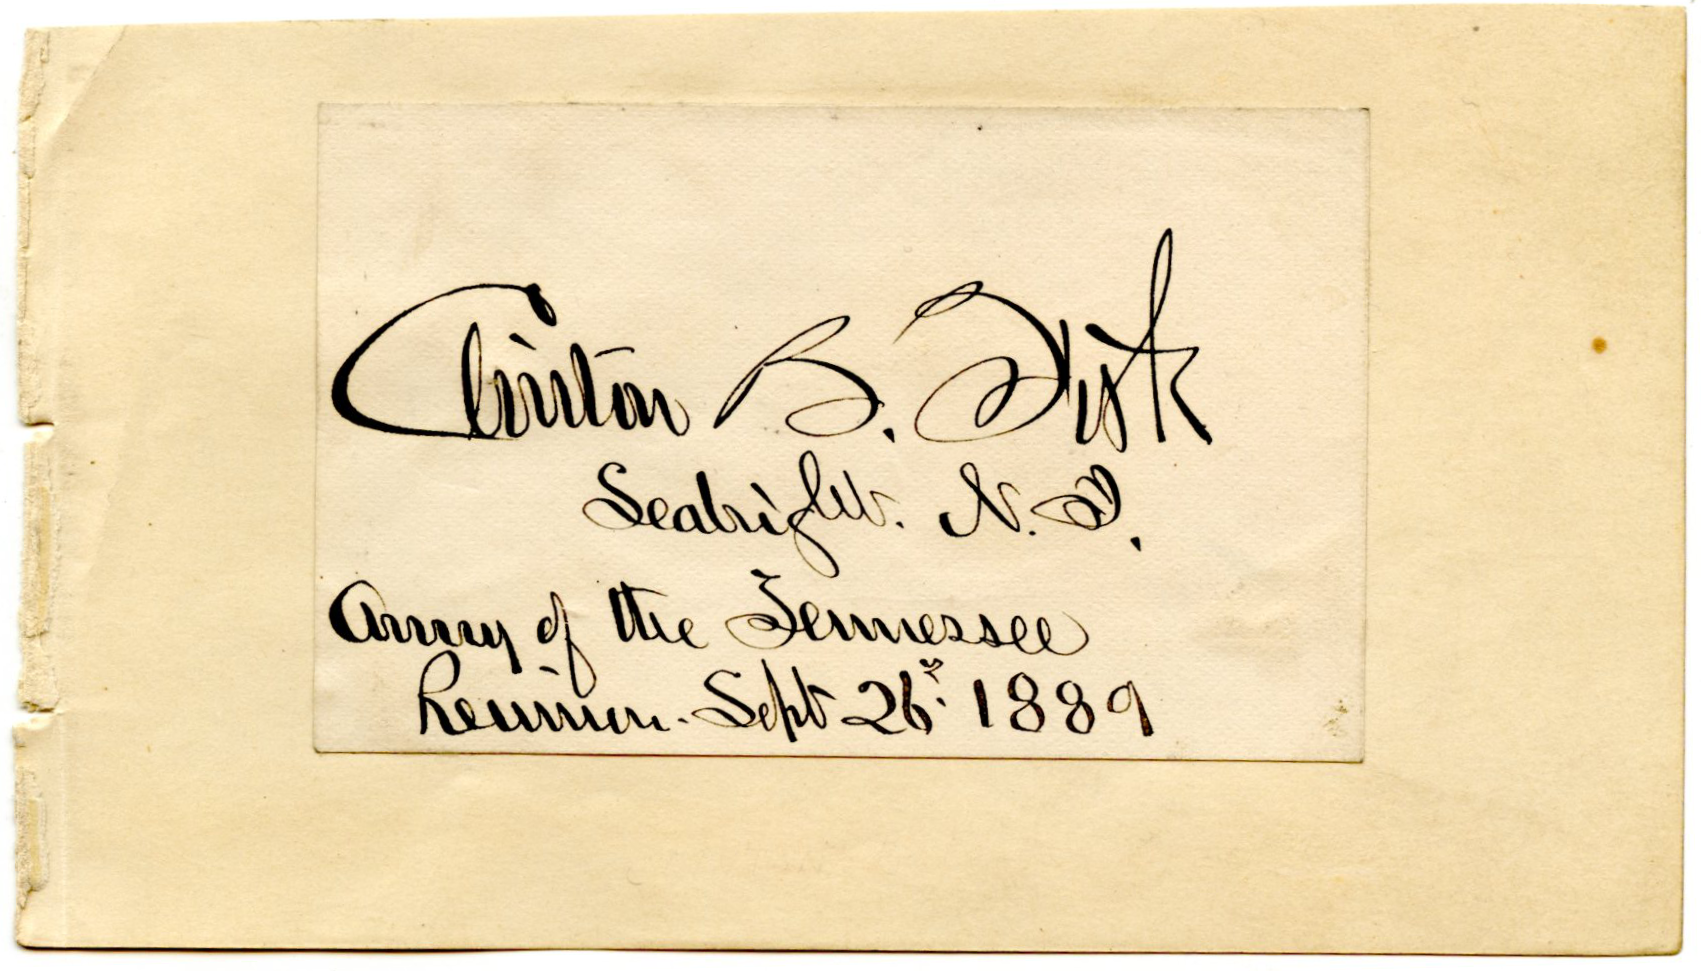 Clinton B. Fisk
Seabright. N. J.
Army of the Tennessee
Reunion. Sept 26th 1889